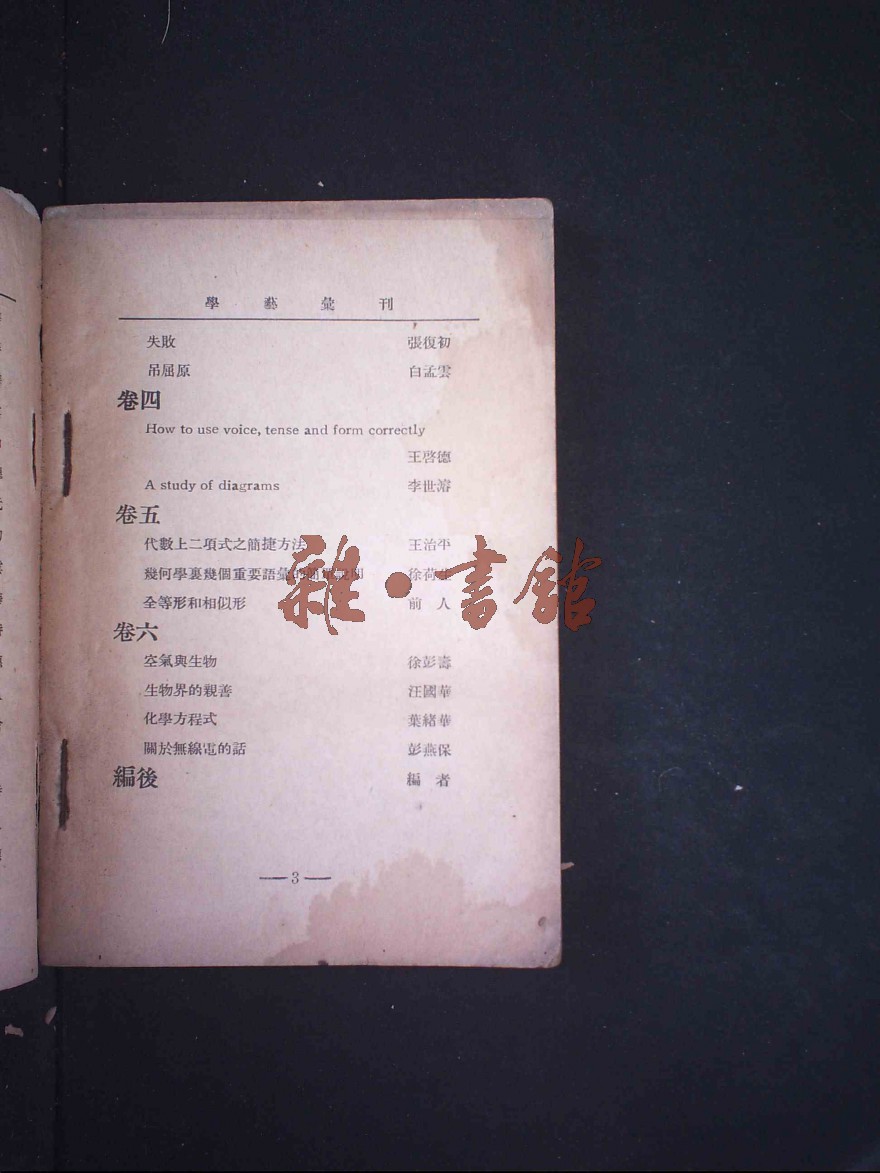 學藝彙刊
失敗 張復初
吊屈原 白孟雲
卷四
How to use voice, tense and form correctly
王啓德
A study of diagrams 李世濬
卷五
代數上二項式之簡捷方法 王治平
幾何學裏幾個重要語彙的簡單説明 徐荷生
全等形和相似形 前人
卷六
空氣與生物 徐彭壽
生物界的親善 汪國華
化學方程式 葉緒華
關於無線電的話 彭燕保
編後 編者
—3—
雜·書館